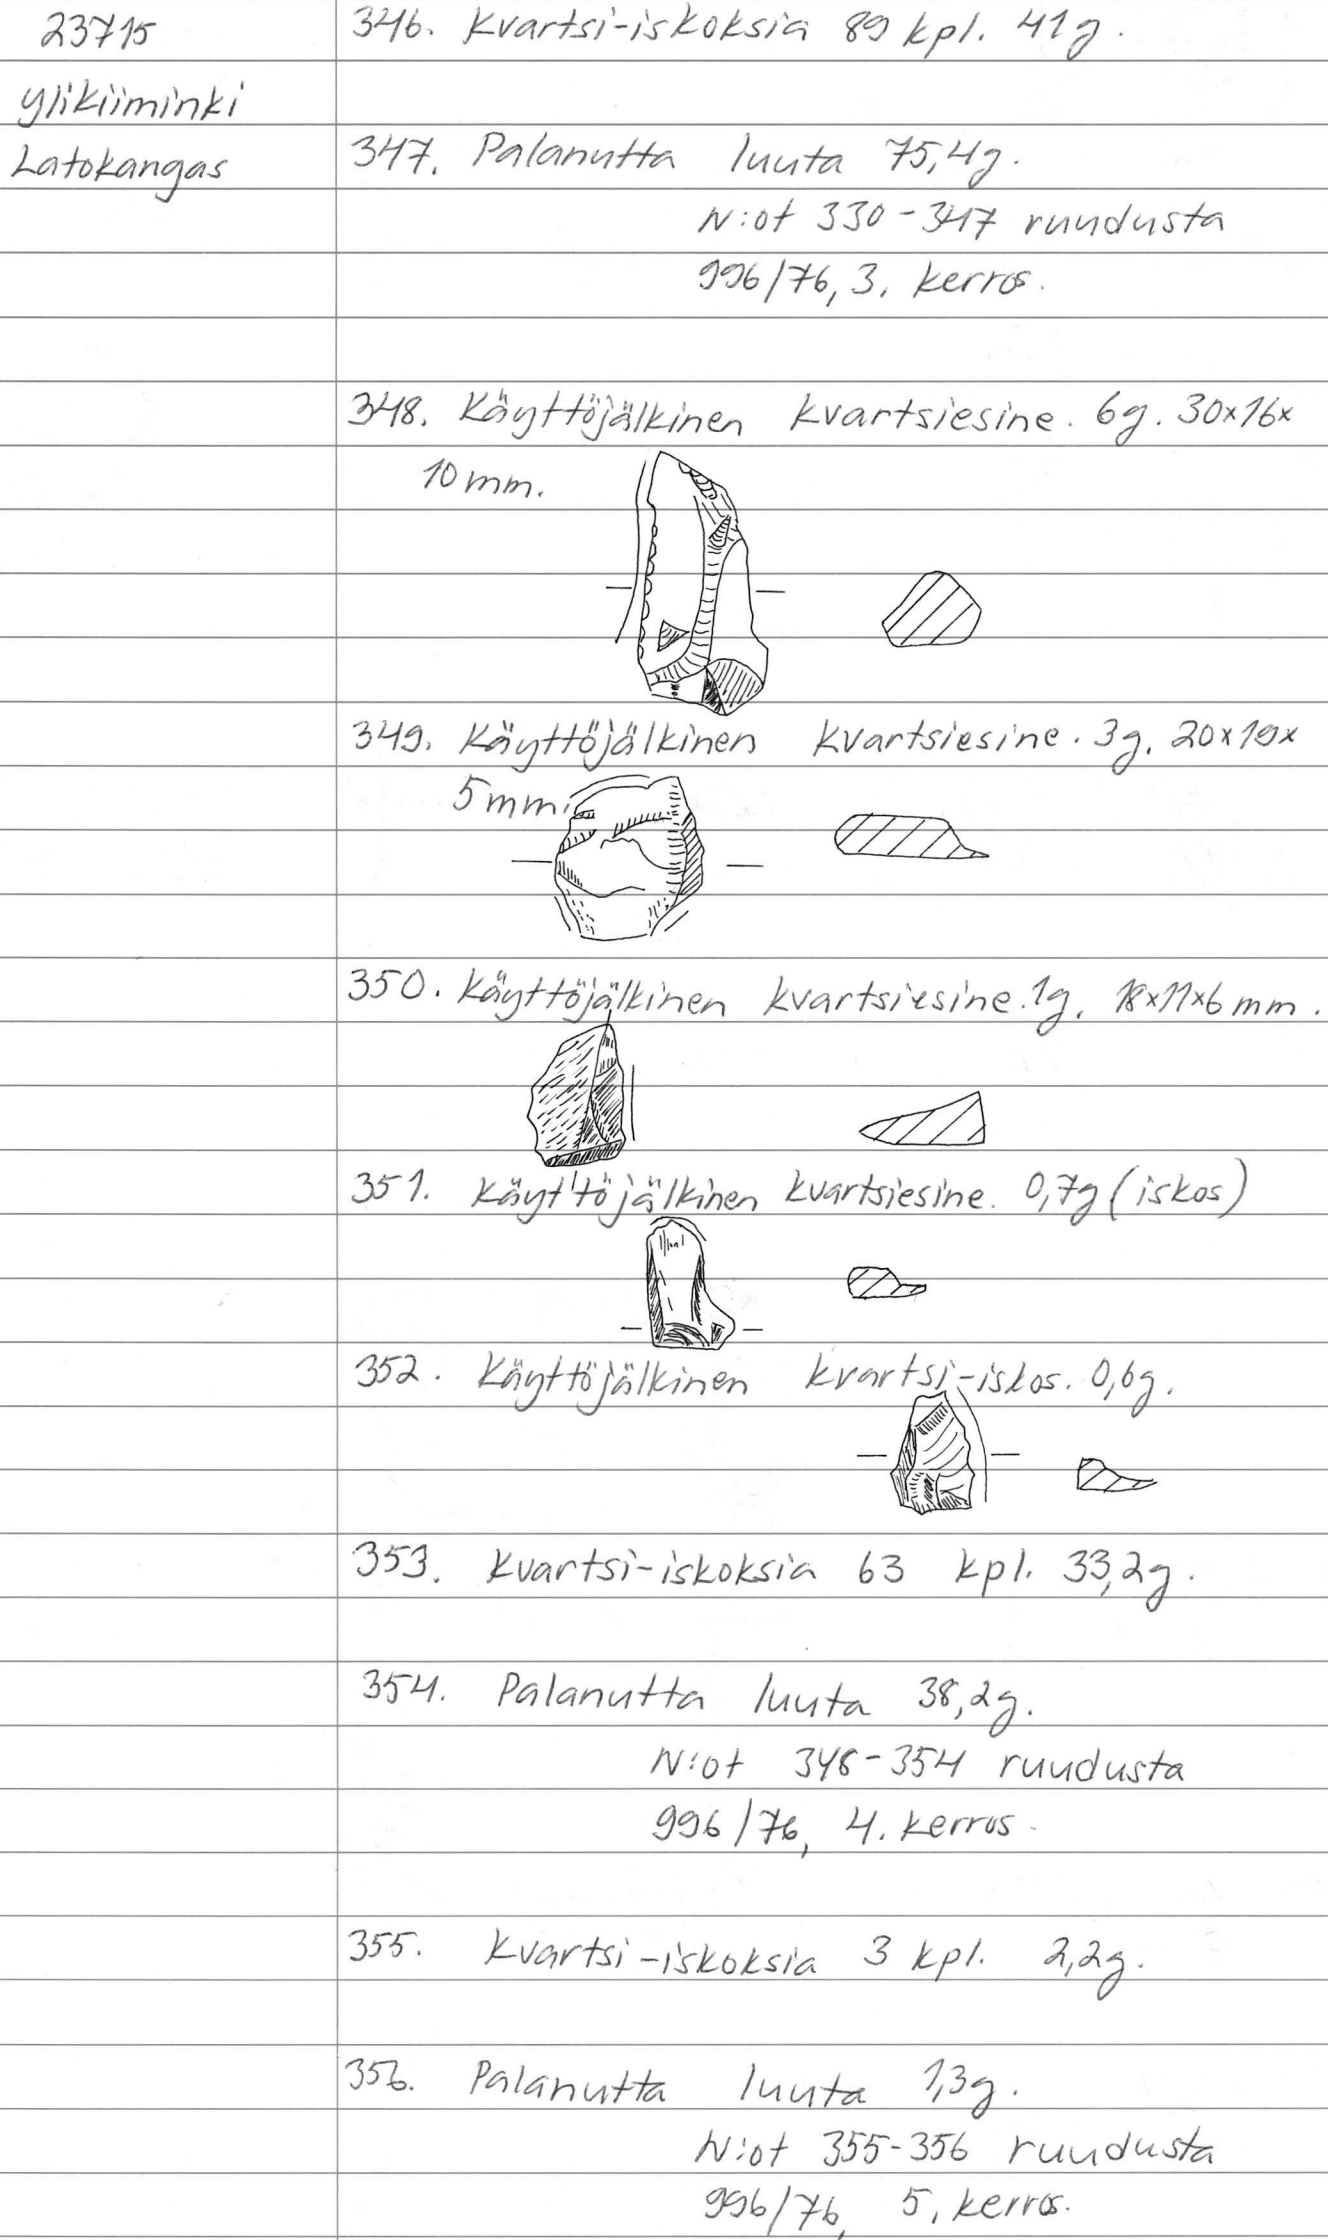 23715
Ylikiiminki
Latokangas
346. Kvartsi-iskoksia 89 kpl. 41g.
347. Palanutta luuta 75,4g.
N:ot 330-347 ruudusta
996/76, 3. kerros.
348. Käyttöjälkinen kvartsiesine. 6g. 30x16x
10 mm.
349. Käyttöjälkinen kvartsiesine. 3g. 20x19x
5 mm.
350. Käyttöjälkinen kvartsiesine. 1g. 18x11x6 mm.
351. Käyttöjälkinen kvartsiesine. 0,7g (iskos)
352. Käyttöjälkinen kvartsi-iskos. 0,6g.
353. Kvartsi-iskoksia 63 kpl. 33,2g.
354. Palanutta luuta 38,2g.
N:ot 348-354 ruudusta
996/76, 4. kerros.
355. Kvartsi-iskoksia 3 kpl. 2,2g.
356. Palanutta luuta 1,3g.
N:ot 355-356 ruudusta
996/76, 5. kerros.